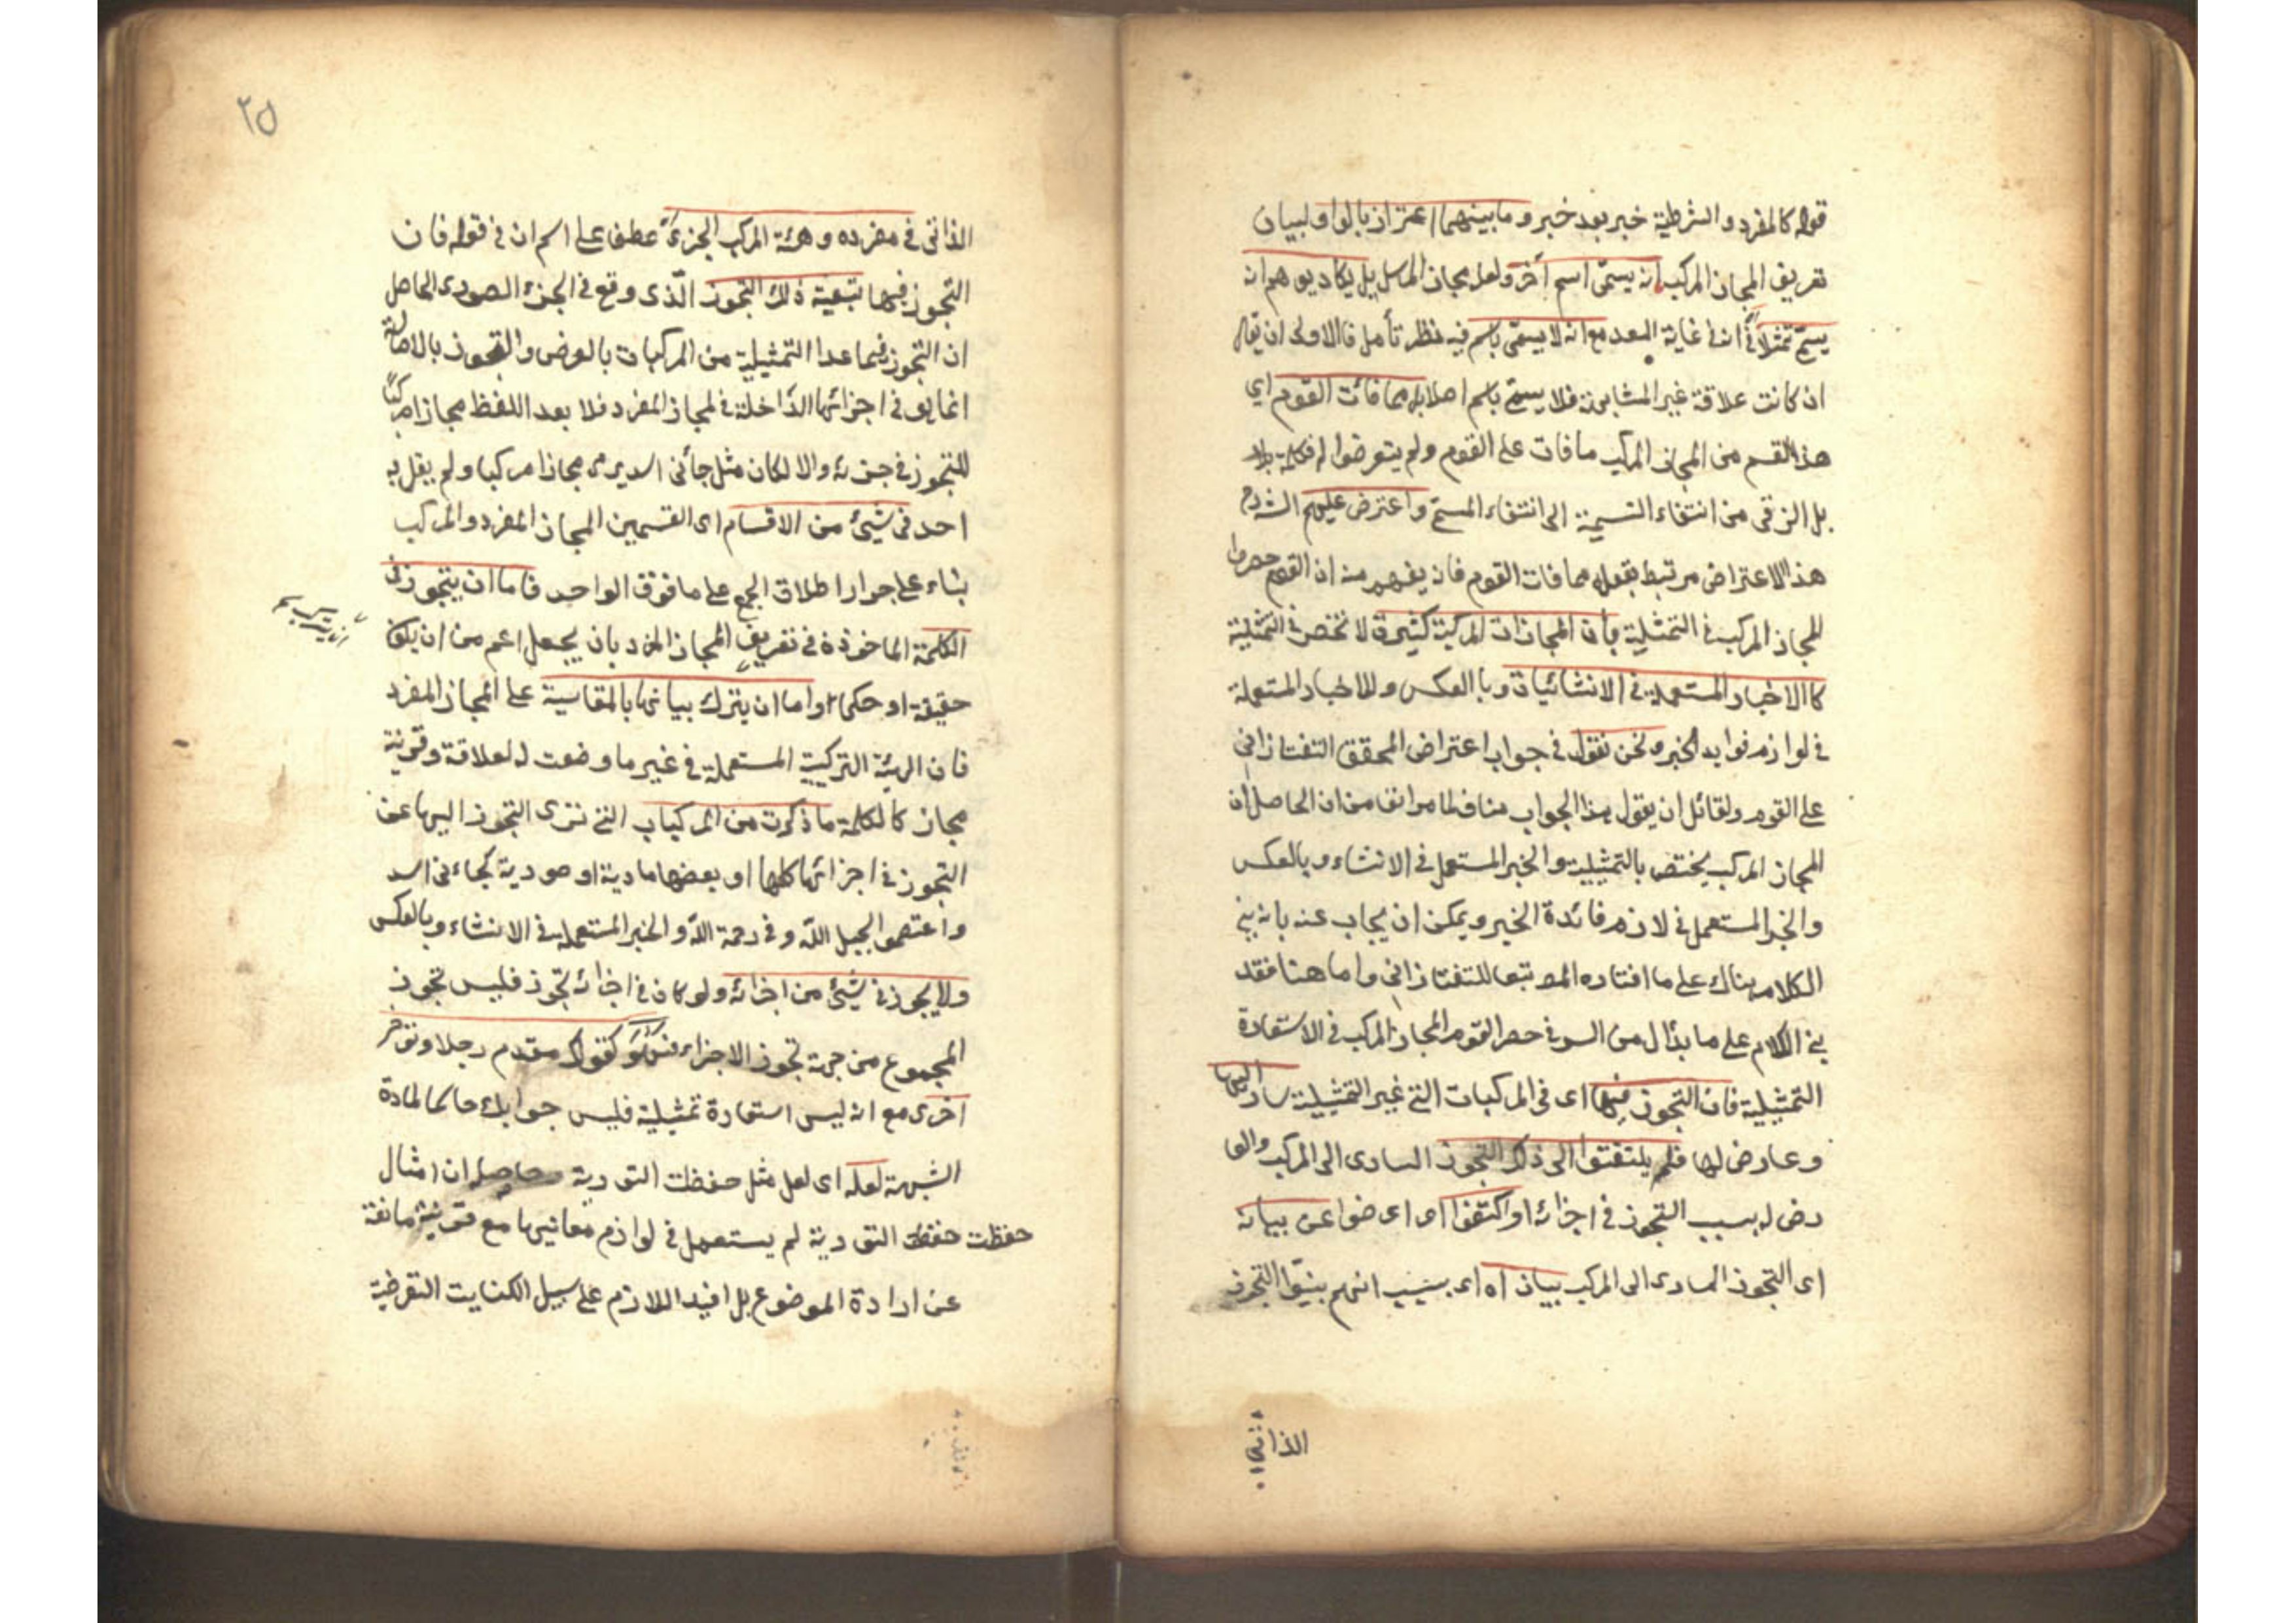 قوله كالمفرد والشرطية خبر بعد خبر وما بينهما اعتراز بالواو لبيان
تعريف المجاز المركب ان يسمى اسم آخر ولعل مجاز المرسل بل يكاد يوهم ان
يسمى تمثيلا في ان في غاية البعد مع انه لا يسمى باسم فيه نظر تأمل فالاولى ان يقال
ان كانت علاقة غير المشابهة فلا يسمى باسم اصلا بل مما فات القوم اي
هذا القسم من المجاز المركب ما فات على القوم ولم يتعرضوا له فكلمة بل
بل الترقى من انتفاء التسمية الى انتفاء المسمى واعترض عليهم الشارح
هذا الاعتراض مرتبط بقوله مما فات القوم فان يفهم منه ان القوم حصروا
المجاز المركب في التمثيلية بأن المجازات المركبة كثيرة لا تختص في التمثيلية
كالاخبار المستعملة في الانشائيات وبالعكس وللاخبار المستعملة
في لوازم فوايد الخبر ونحن نقول في جواب اعتراض المحقق التفتازاني
على القوم ولقائل ان يقول هذا الجواب مناف لما مر انفا من ان الحاصل ان
المجاز المركب يختص بالتمثيلية والخبر المستعمل في الانشاء وبالعكس
والخبر المستعمل في لازم فائدة الخبر ويمكن ان يجاب عنه بانه بنى
الكلام هناك على ما افتاده المص تبعا للتفتازاني واما هنا فقد
بنى الكلام على ما بدأ ل من السر في حصر القوم المجاز المركب في الاستعارة
التمثيلية فان التجوز فيها اى في المركبات التى غير التمثيلية سار اليها
وعارض لها فلم يلتفتوا الى ذكر التجوز السارى الى المركب والعا
رض له بسبب التجوز في اجزائه او اكتفوا اى اعرضوا عن بيانه
اى التجوز السارى الى المركب ببيان اه اى بسبب انهم بينوا التجوز
الذاتى
٢٥
الذاتى في مفرده وهيئة المركب الجزئ عطف على اسم ان في قوله فان
التجوز فيها بتبعية ذلك التجوز الذى وقع في الجزء الصورى الحاصل
ان التجوز فيما عدا التمثيلية من المركبات بالعرض والتجوز بالاصالة
انما يق في اجزائها الداخلة في المجاز المفرد فلا بعد اللفظ مجازا مركبا
للتجوز في جزئه والا لكان مثل جائنى اسد يرمى مجازا مركبا ولم يقل به
احد في شيئ من الاقسام اى القسمين المجاز المفرد والمركب
بناء على جواز اطلاق الجمع على ما فوق الواحد فاما ان يتجوز في
الكلمة الماخوذة في تعريف المجاز المفرد بان يجعل اعم من ان يكون
حقيقة او حكما واما ان يترك بيانها بالمقايسة على المجاز المفرد
فان الهيئة التركيبية المستعملة في غير ما وضعت له لعلاقة وقرينة
مجاز كالكلمة ما ذكرت من المركبات التى تترى التجوز اليها عن
التجوز في اجزائها كلها او بعضها مادية او صورية كجاءنى اسد
واعتصموا بحبل الله وفي رحمة الله والخبر المستعملة في الانشاء وبالعكس
ولا يجوز في شيئ من اجزائه ولو كان في اجزائه تجوز فليس تجوز
المجموع من جهة تجوز الاجزاء كقولك تقدم رجلا وتؤخر
اخرى مع انه ليس استعارة تمثيلية فليس جوابك حاكما لمادة
الشبهة لعله اى لعل مثل حفظت التورية حاصله ان امثال
حفظت حفظت التورية لم يستعمل في لوازم معانيها مع قرينة مانعة
عن ارادة الموضوع بل افيد اللازم على سبيل الكنايت التعرضية